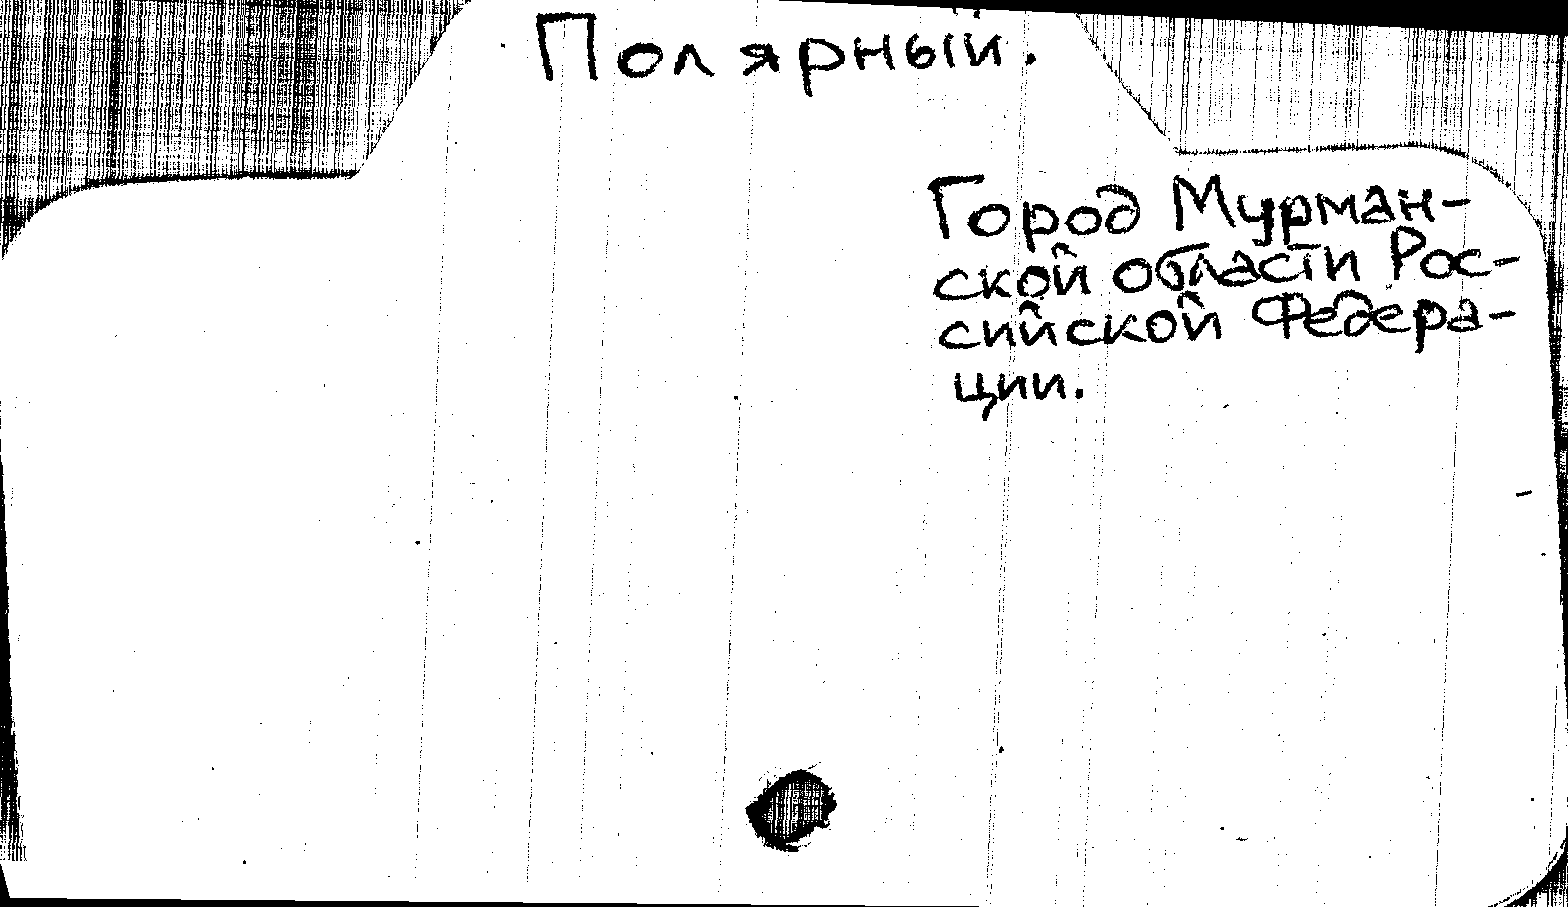 Полярный.
Город Мурман-
ской области Рос-
сийской Федера-
ции.